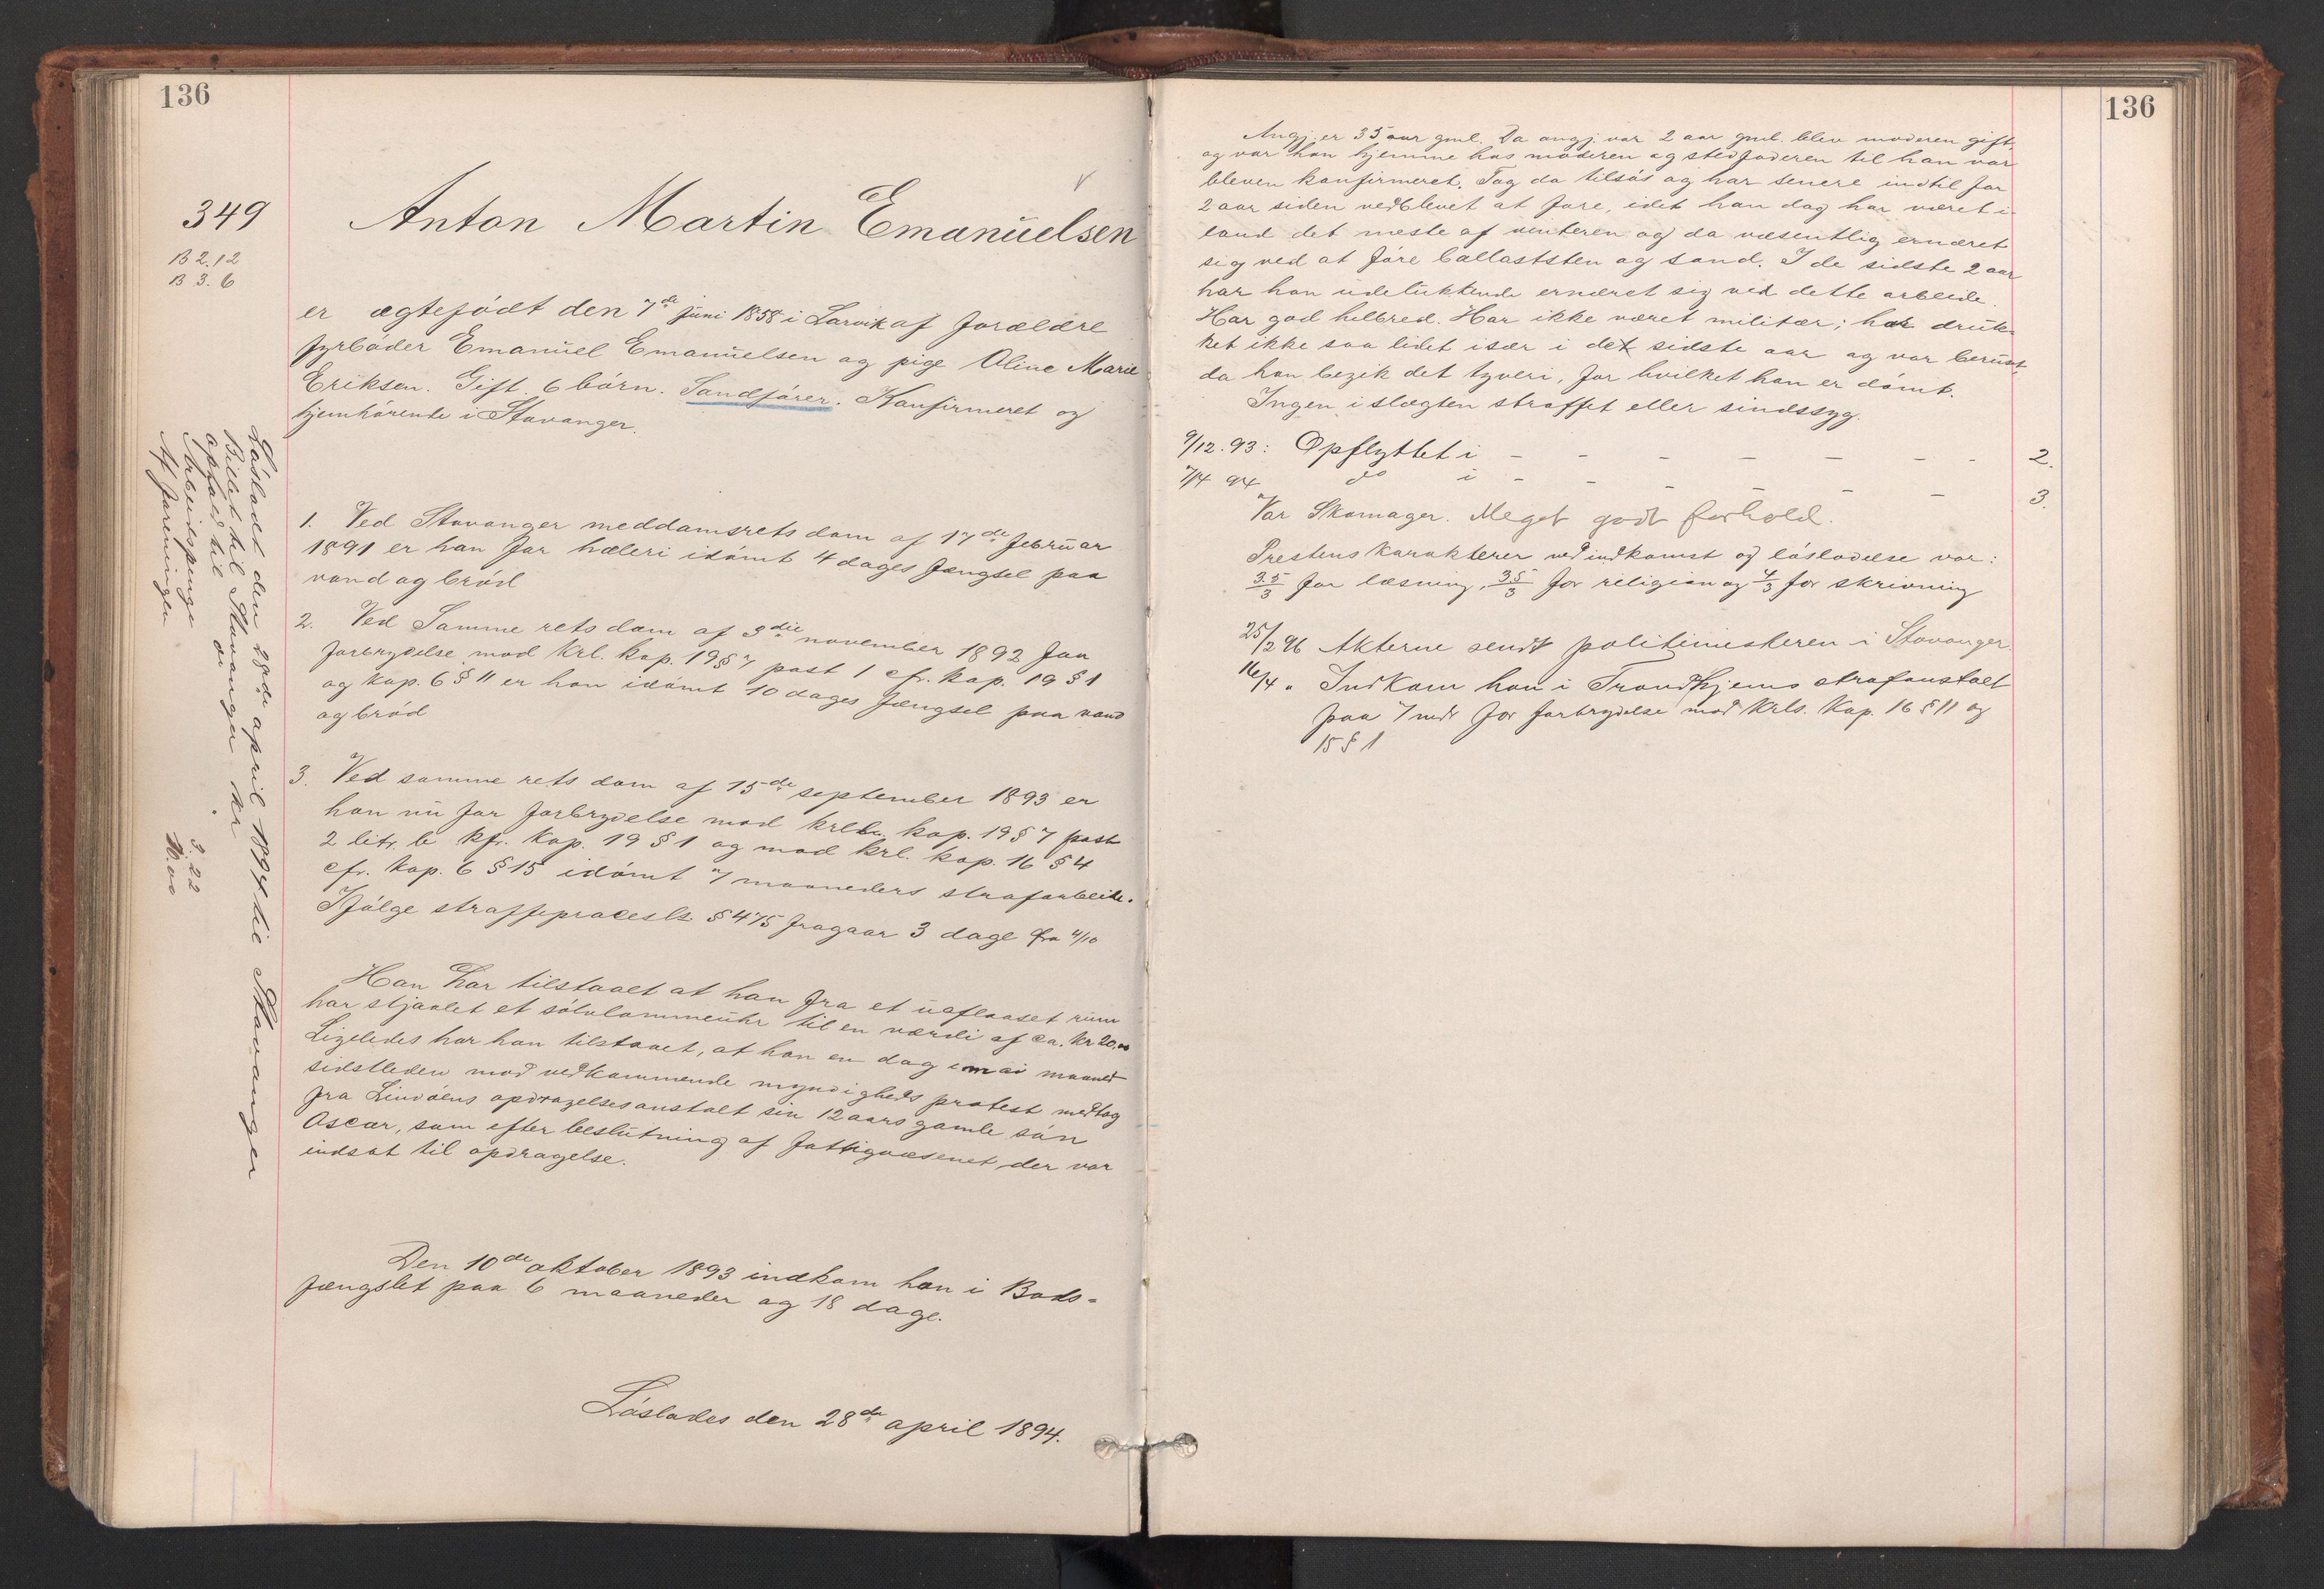 136
349
B 2.12
B 3.6
Anton Martin Emanuelsen
er ægtefødt den 7de juni 1858 i Larvik af forældre
fyrbøder Emanuel Emanuelsen og pige Oline Marie
Eriksen. Gift. 6 børn. Sandfører. Konfirmeret og
hjemhørende i Stavanger.
Løsladt den 28de april 1894 til Stavanger
Billet til Stavanger kr
ophold til do
Arbeidspenge 3.22
Af foreningen
1. Ved Stavanger meddomsrets dom af 17de februar
1891 er han for hæleri idømt 4 dages fængsel paa
vand og brød
2. Ved Samme rets dom af 3die november 1892 for
forbrydelse mod krl. kap. 19 § 7 post 1 cfr. kap. 19 § 1
og kap. 6 § 11 er han idømt 10 dages fængsel paa vand
og brød
3. Ved samme rets dom af 15de september 1893 er
han nu for forbrydelse mod krl. kap. 19 § 7 post
2 litr. b kfr. kap. 19 § 1 og mod krl. kap. 16 § 4
cfr. kap. 6 § 15 idømt 7 maaneders strafarbeide.
Ifølge straffeprocesls. § 475 fragaar 3 dage fra 4/10
Han har tilstaaet at han fra et uaflaaset rum
har stjaalet et sølvlommeuhr til en værdi af ca. kr 20.00
Ligeledes har han tilstaaet, at han en dag i mai maaned
sidstleden mod vedkommende myndigheds protest medtog
fra Lindøens opdragelsesanstalt sin 12 aars gamle søn
Oscar, som efter beslutning af fattigvæsenet der var
indsat til opdragelse.
Den 10de oktober 1893 indkom han i Bods-
fængslet paa 6 maaneder og 18 dage.
Løslades den 28de april 1894.
136
Angj. er 35 aar gml. Da angj. var 2 aar gml. blev moderen gift,
og var han hjemme hos moderen og stedfaderen til han var
bleven konfirmeret. Tog da tilsøs og har senere indtil for
2 aar siden vedblevet at fare, idet han dog har været i
land det meste af vinteren og da væsentlig ernæret
sig ved at føre ballaststen og sand. I de sidste 2 aar
har han udelukkende ernæret sig ved dette arbeide.
Har god helbred. Har ikke været militær; har druk-
ket ikke saa lidet især i det sidste aar og var beruset,
da han begik det tyveri, for hvilket han er dømt.
Ingen i slægten straffet eller sindssyg.
9/12. 93: Opflyttet i - - - - - - - 2.
7/4 94 do i - - - - - - 3.
Var Skomager. Meget godt forhold.
Prestens karakterer ved indkomst og løsladelse var:
3.5/3 for læsning, 3.5/3 for religion og 4/3 for skrivning
25/2 96 Akterne sendt politimesteren i Stavanger.
16/4 " Indkom han i Trondhjems strafanstalt
paa 7 mdr for forbrydelse mod Krls. Kap. 16 § 11 og
15 § 1